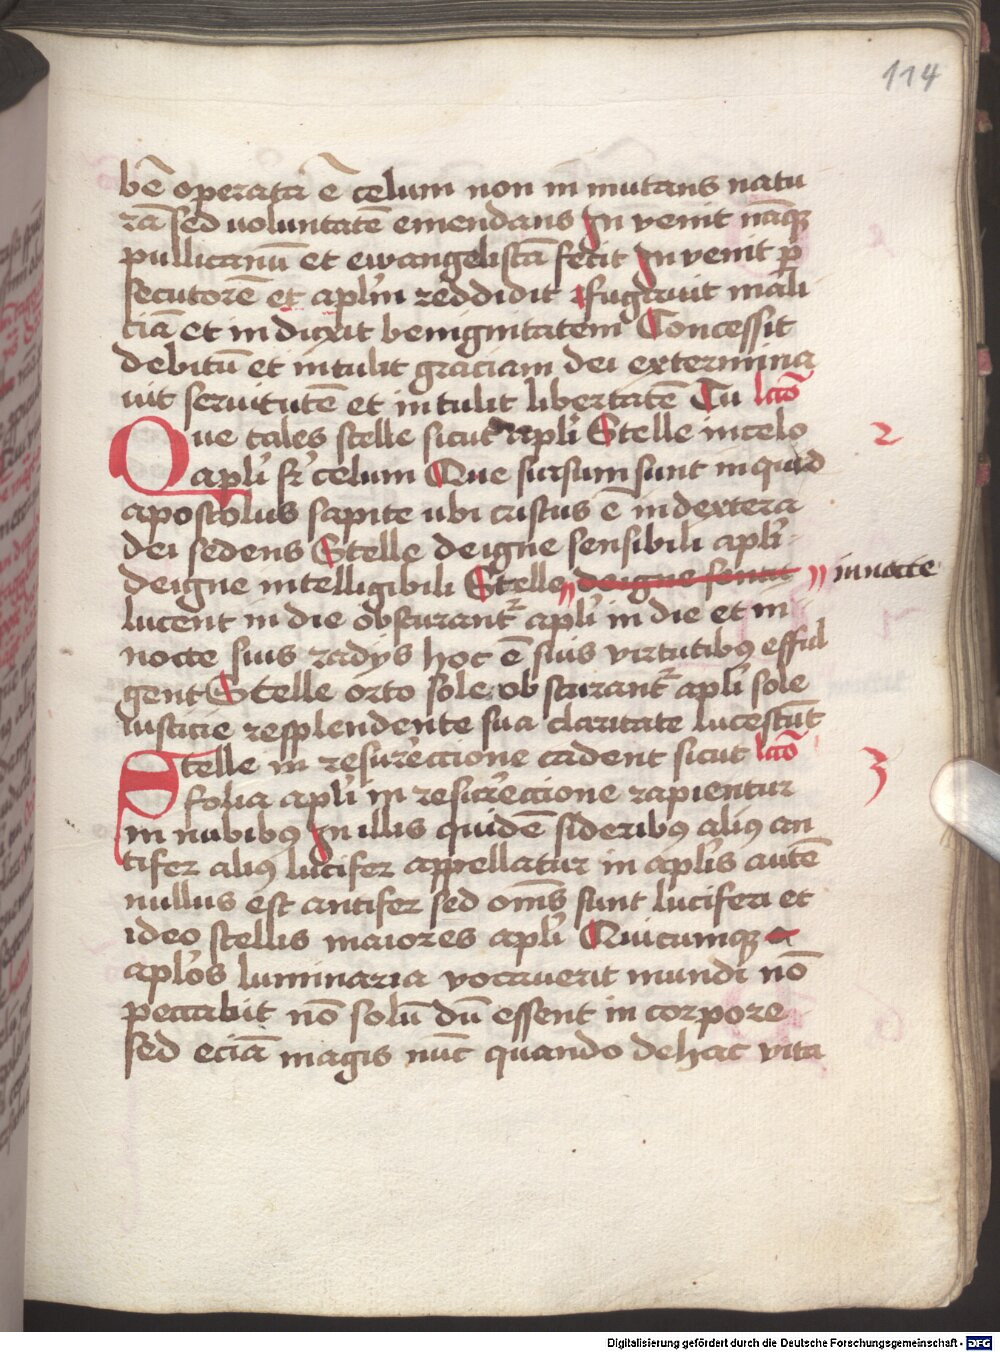 114
bē operata ē celum non in mutans natu
rā sed uoluntatē emendans In venit nāq;
pullicanū et ewangelistā fecit In venit p̄
secutorē et aplm̄ reddidit effugauit mali
ciā et in duxit benignitatem Concessit
debitū et intulit graciam dei extermina
uit seruitutē et in tulit libertatē Tu lc̄o
Que tales stelle sicut apli Stelle in celo 2
apli sr̄ celum Que sursum sunt inquid
apostolus sapite ubi cristus ē in dextera
dei sedens Stelle de igne sensibili apli
de igne intelligibili Stelle " de igne sensu " in nocte
lucent in die obscurant᷑ apli in die et in
nocte suis radys hoc ē suis virtutib9 efful
gent Stelle orto sole obscurant᷑ apli sole
iusticie resplendente sua claritate lucescūt
Stelle in resurrēccione cadent sicut lc̄o 3
folia apli in resurrēccione rapientur
in nubib9 In illis quidē siderib9 ali9 an
tifer ali9 lucifer appellatur in aplis autē
nullus est antifer sed om̄s sunt luciferi et
ideo stellis maiores apli Quicumq; a
aplos luminaria vocauerit mundi nō
peccabit nō solū dū essent in corpore
sed eciā magis nūc quando de hac vita
Digitalisierung gefördert durch die Deutsche Forschungsgemeinschaft - DFG